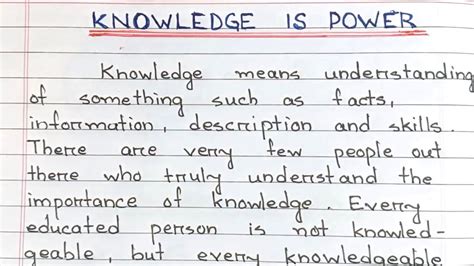 KNOWLEDGE IS POWER
Knowledge means understanding
of something such as facts,
information, description and skills.
There are very few people out
there who truly understand the
importance of knowledge. Every
educated person is not knowled-
geable, but every knowledgeable